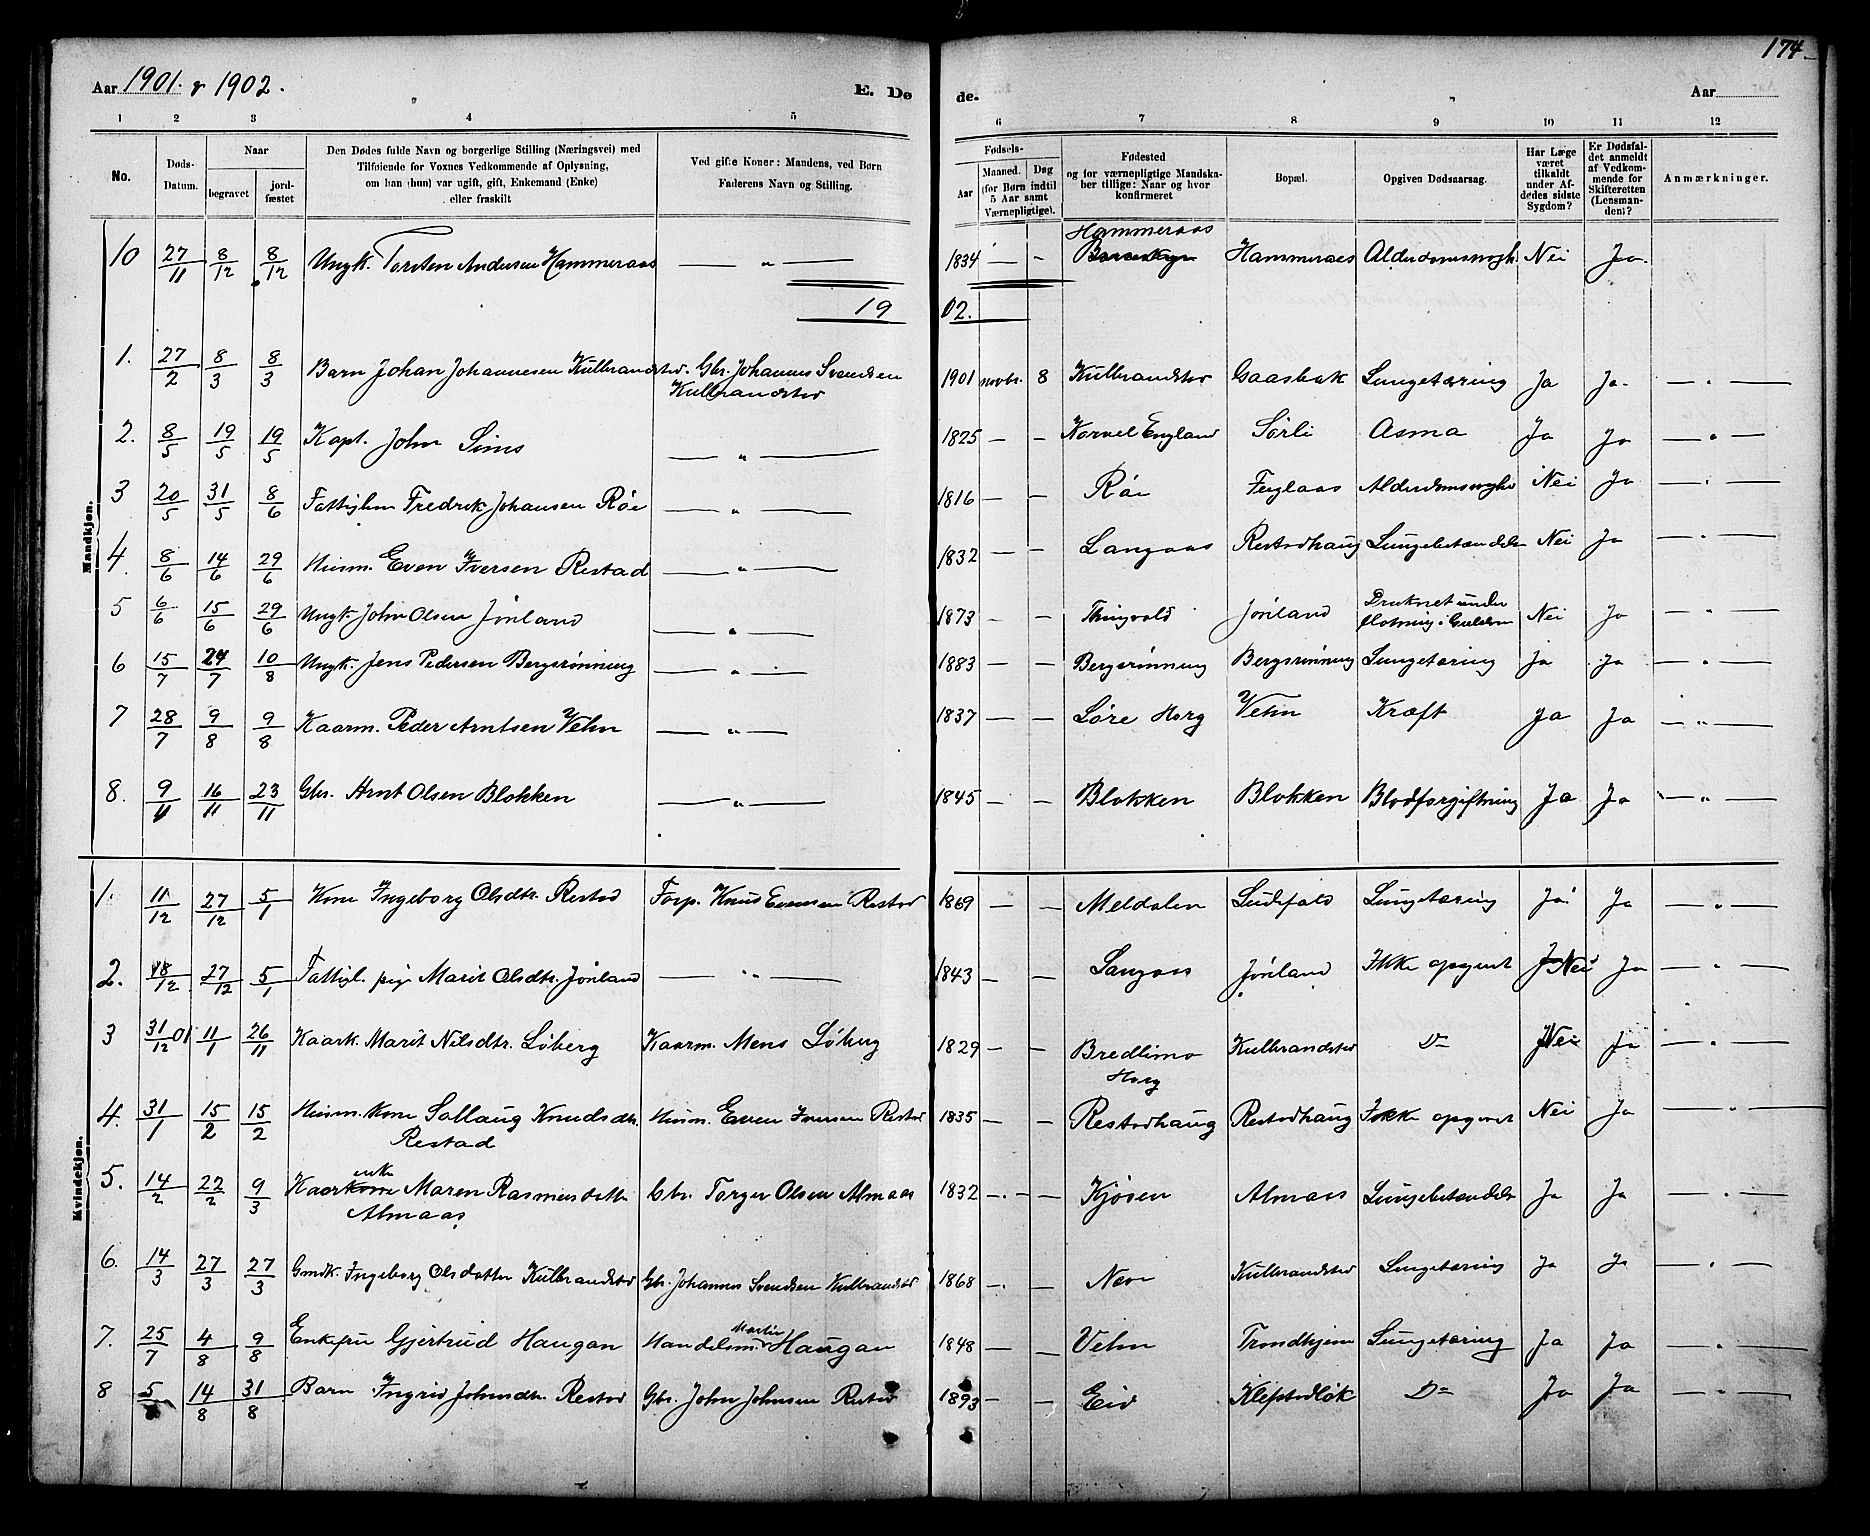 174
Aar 1901. & 1902.
E. Dø
de.
Aar
1 2 3 4 5 6 7 8 9 10 11 12
No.
Døds-Datum.
Naar
begravet
jordfæstet
Den Dødes fulde Navn og borgerlige Stilling (Næringsvei) med
Tilføiende for Voxnes Vedkommende af Oplysning,
om han (hun) var ugift, gift, Enkemand (Enke)
eller fraskilt
Ved gifte Koner: Mandens, ved Børn
Faderens Navn og Stilling.
Fødsels-
Aar
Maaned. Dag
(for Børn indtil
5 Aar samt
Værnepligtige).
Fødested
og for værnepligtige Mandska-
ber tillige: Naar og hvor
konfirmeret
Bopæl.
Opgiven Dødsaarsag.
Har Læge
været
tilkaldt
under Af-
dødes sidste
Sygdom?
Er Dødsfal-
det anmeldt
af Vedkom-
mende for
Skifteretten
(Lensman-
den)?
Anmærkninger.
Mandkjøn.
Hammeraas
10 27/11 8/12 8/12 Ungk. Torsten Andersen Hammeraas — " — 1834 - - Hammeraas Alderdomssvagh. Nei Ja.
19 02.
1. 27/2 8/3 8/3 Barn Johan Johannesen Kulbrandstød. Gbr. Johannes Svendsen 1901 novbr. 8 Kulbrandstød Gaasbak Lungetæring Ja Ja. — " —
Kulbrandstød
2. 8/5 19/5 19/5 Kapt. John Sims — " — 1825 — - England Sørli Asma Ja Ja — " —
3 20/5 31/5 8/6 Fattiglem Fredrik Johansen Røe — " — 1816 — - Røe Fuglaas Alderdomssvaghe Nei Ja — " —
4 8/6 14/6 29/6 Husm. Even Iversen Restad — " — 1832 — - Langaas Restadhaug Lungebetændelse Nei Ja — " —
5 6/6 15/6 29/6 Ungk. John Olsen Jønland — " — 1873 — - Thingvold Jønland Druknet under Nei Ja — " —
fløtning i Guldn
6 15/7 27/7 10/8 Ungk. Jens Pedersen Bergsrønning — " — 1883 — - Bergsrønning Bergsrønning Lungetæring Ja Ja — " —
7 28/7 9/8 9/8 Kaarm. Peder Arntsen Vehn — " — 1837 — - Søre Horg Vehn Kræft Ja Ja — " —
8. 9/11 16/11 23/11 Gbr. Arnt Olsen Blokken — " — 1845 - - Blokken Blokken Blodforgiftning Ja Ja — " —
Kvindekjøn.
1. 11/12 27/12 5/1 Kone Ingeborg Olsdtr. Restad Forp. Knud Evensen Restad 1869 — - Meldalen Lungetæring Ja Ja — " —
2. 18/12 27/12 5/1 Fattigl. pige Marit Olsdtr. Jønland — " — 1843 - - Langaas Jønland Ikke opgivet Nei Ja — " —
3 31/12 01 11/1 26/11 Kaark. Marit Nilsdtr. Løberg Kaarm. Mons Løberg 1829 — - Bredlimo Kulbrandstød Do Nei Ja — " —
Horg
4. 31/1 15/2 15/2 Husm. Kone Sollaug Knudsdtr. Husm. Even Iversen Restad 1835 — - Restadhaug Restadhaug Ikke opgivet Nei Ja — " —
Restad
enke
5. 14/2 22/2 9/3 Kaarkone Maren Rasmusdatter Gbr. Torger Olsen Almaas 1832 - - Kjøsen Almaas Lungebetændelse Ja Ja — " —
Almaas
6. 14/3 27/3 27/3 Gmdk. Ingeborg Olsdatter Kulbrandstød Gbr. Johannes Svendsen Kulbrandstød 1868 - - Kulbrandstød Lungetæring Ja Ja — " —
7. 25/7 4/8 9/8 Enkefru Gjertrud Haugan Handelsm. Martin Haugan 1848 — - Vehn Trondhjem Lungetæring Ja Ja — " —
8 5/ 14/8 31/8 Barn Ingrid Johnsdtr. Restad Gbr. John Johnsen Restad 1893 - - Eid Do Ja Ja — " —